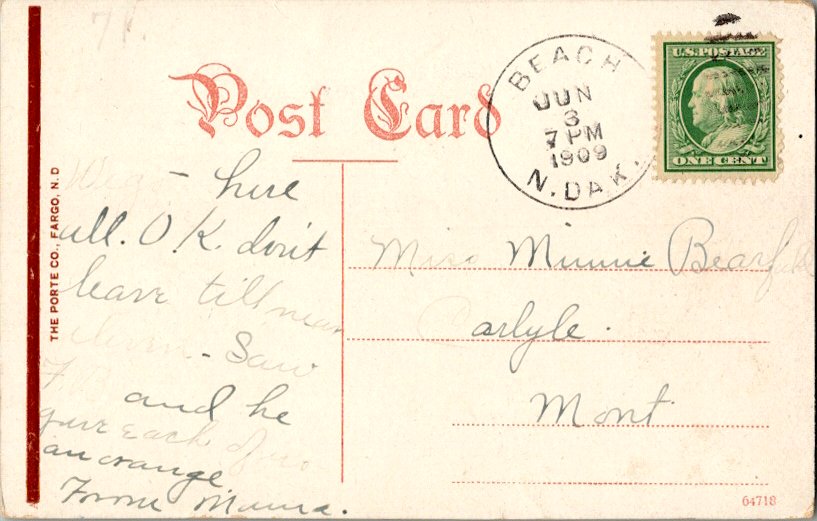 Post Card
BEACH
JUN
3
7 PM
1909
N. DAK.
U.S. POSTAGE
ONE CENT
THE PORTE CO., FARGO, N. D
- here
all. O.K. don't
leave till near
- Saw
and he
gave each of us
an orange
From Mama.
Miss Minnie
Carlyle.
Mont
64718